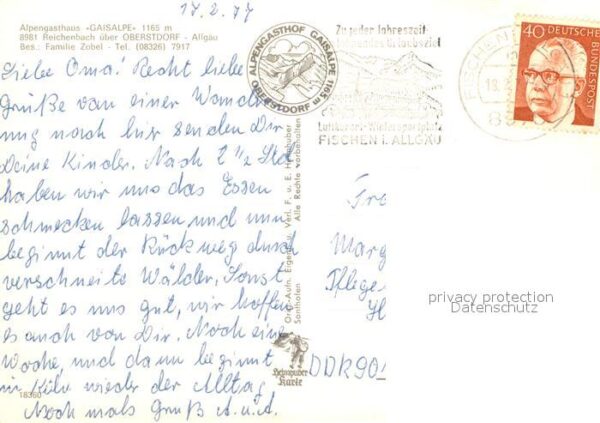 17.2.77
Alpengasthaus «GAISALPE» 1165 m
8981 Reichenbach über OBERSTDORF - Allgäu
Bes.: Familie Zobel - Tel. (08326) 7917
Liebe Oma! Recht liebe
Grüße von einer Wander
ung nach hier senden Dir
Deine Kinder. Nach 2 ½ Std
haben wir uns das Essen
schmecken lassen und nun
beginnt der Rückweg durch
verschneite Wälder. Sonst
geht es uns gut, wir hoffen
es auch von Dir. Noch eine
Woche, und dann beginnt
in Köln wieder der Alltag
Noch mals Gruß A.u.A.
18360
ALPENGASTHOF GAISALPE 1165 m
OBERSTDORF
Zu jeder Jahreszeit
Luftkurort - Wintersportplatz
FISCHEN i. ALLGÄU
FISCHEN
18.
40
DEUTSCHE BUNDESPOST
Orig.-Aufn. Eigentum u. Verl. F. u. E. Heimhuber
Sonthofen Alle Rechte vorbehalten
Heimhuber
Karte
Marg
Pflege-
DDR 90
privacy protection
Datenschutz